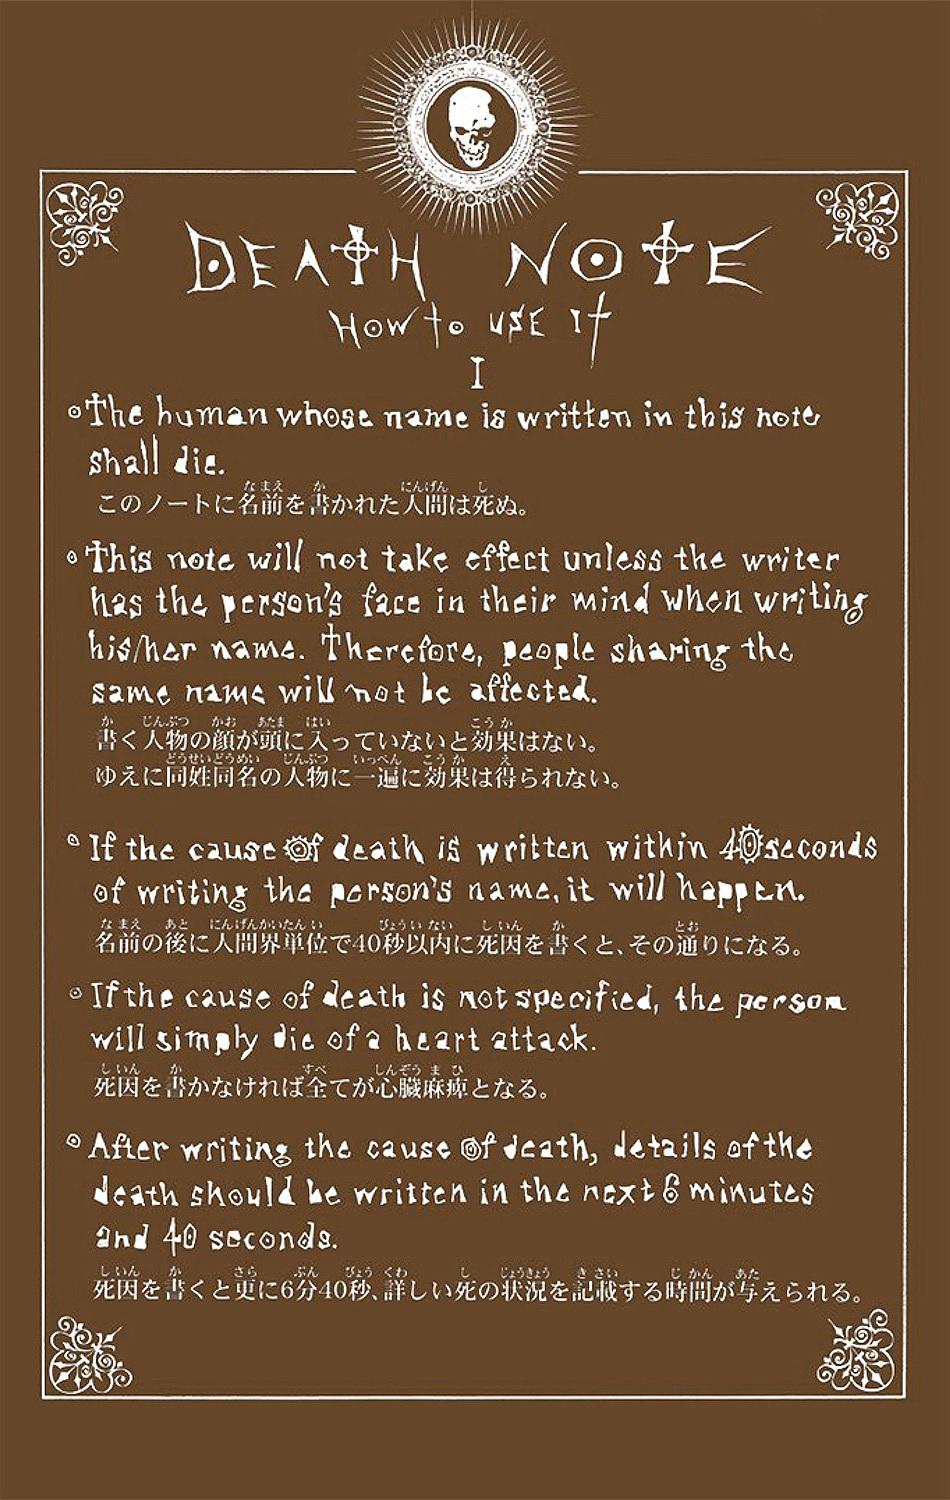 DEATH NOTE
HOW to USE It
I
The human whose name is written in this note
shall die.
このノートに名前を書かれた人間は死ぬ。
This note will not take effect unless the writer
has the person's face in their mind when writing
his/her name. Therefore, people sharing the
same name will not be affected.
書く人物の顔が頭に入っていないと効果はない。
ゆえに同姓同名の人物に一遍に効果は得られない。
If the cause of death is written within 40 seconds
of writing the person's name, it will happen.
名前の後に人間界単位で40秒以内に死因を書くと、その通りになる。
If the cause of death is not specified, the person
will simply die of a heart attack.
死因を書かなければ全てが心臓麻痺となる。
After writing the cause of death, details of the
death should be written in the next 6 minutes
and 40 seconds.
死因を書くと更に6分40秒、詳しい死の状況を記載する時間が与えられる。